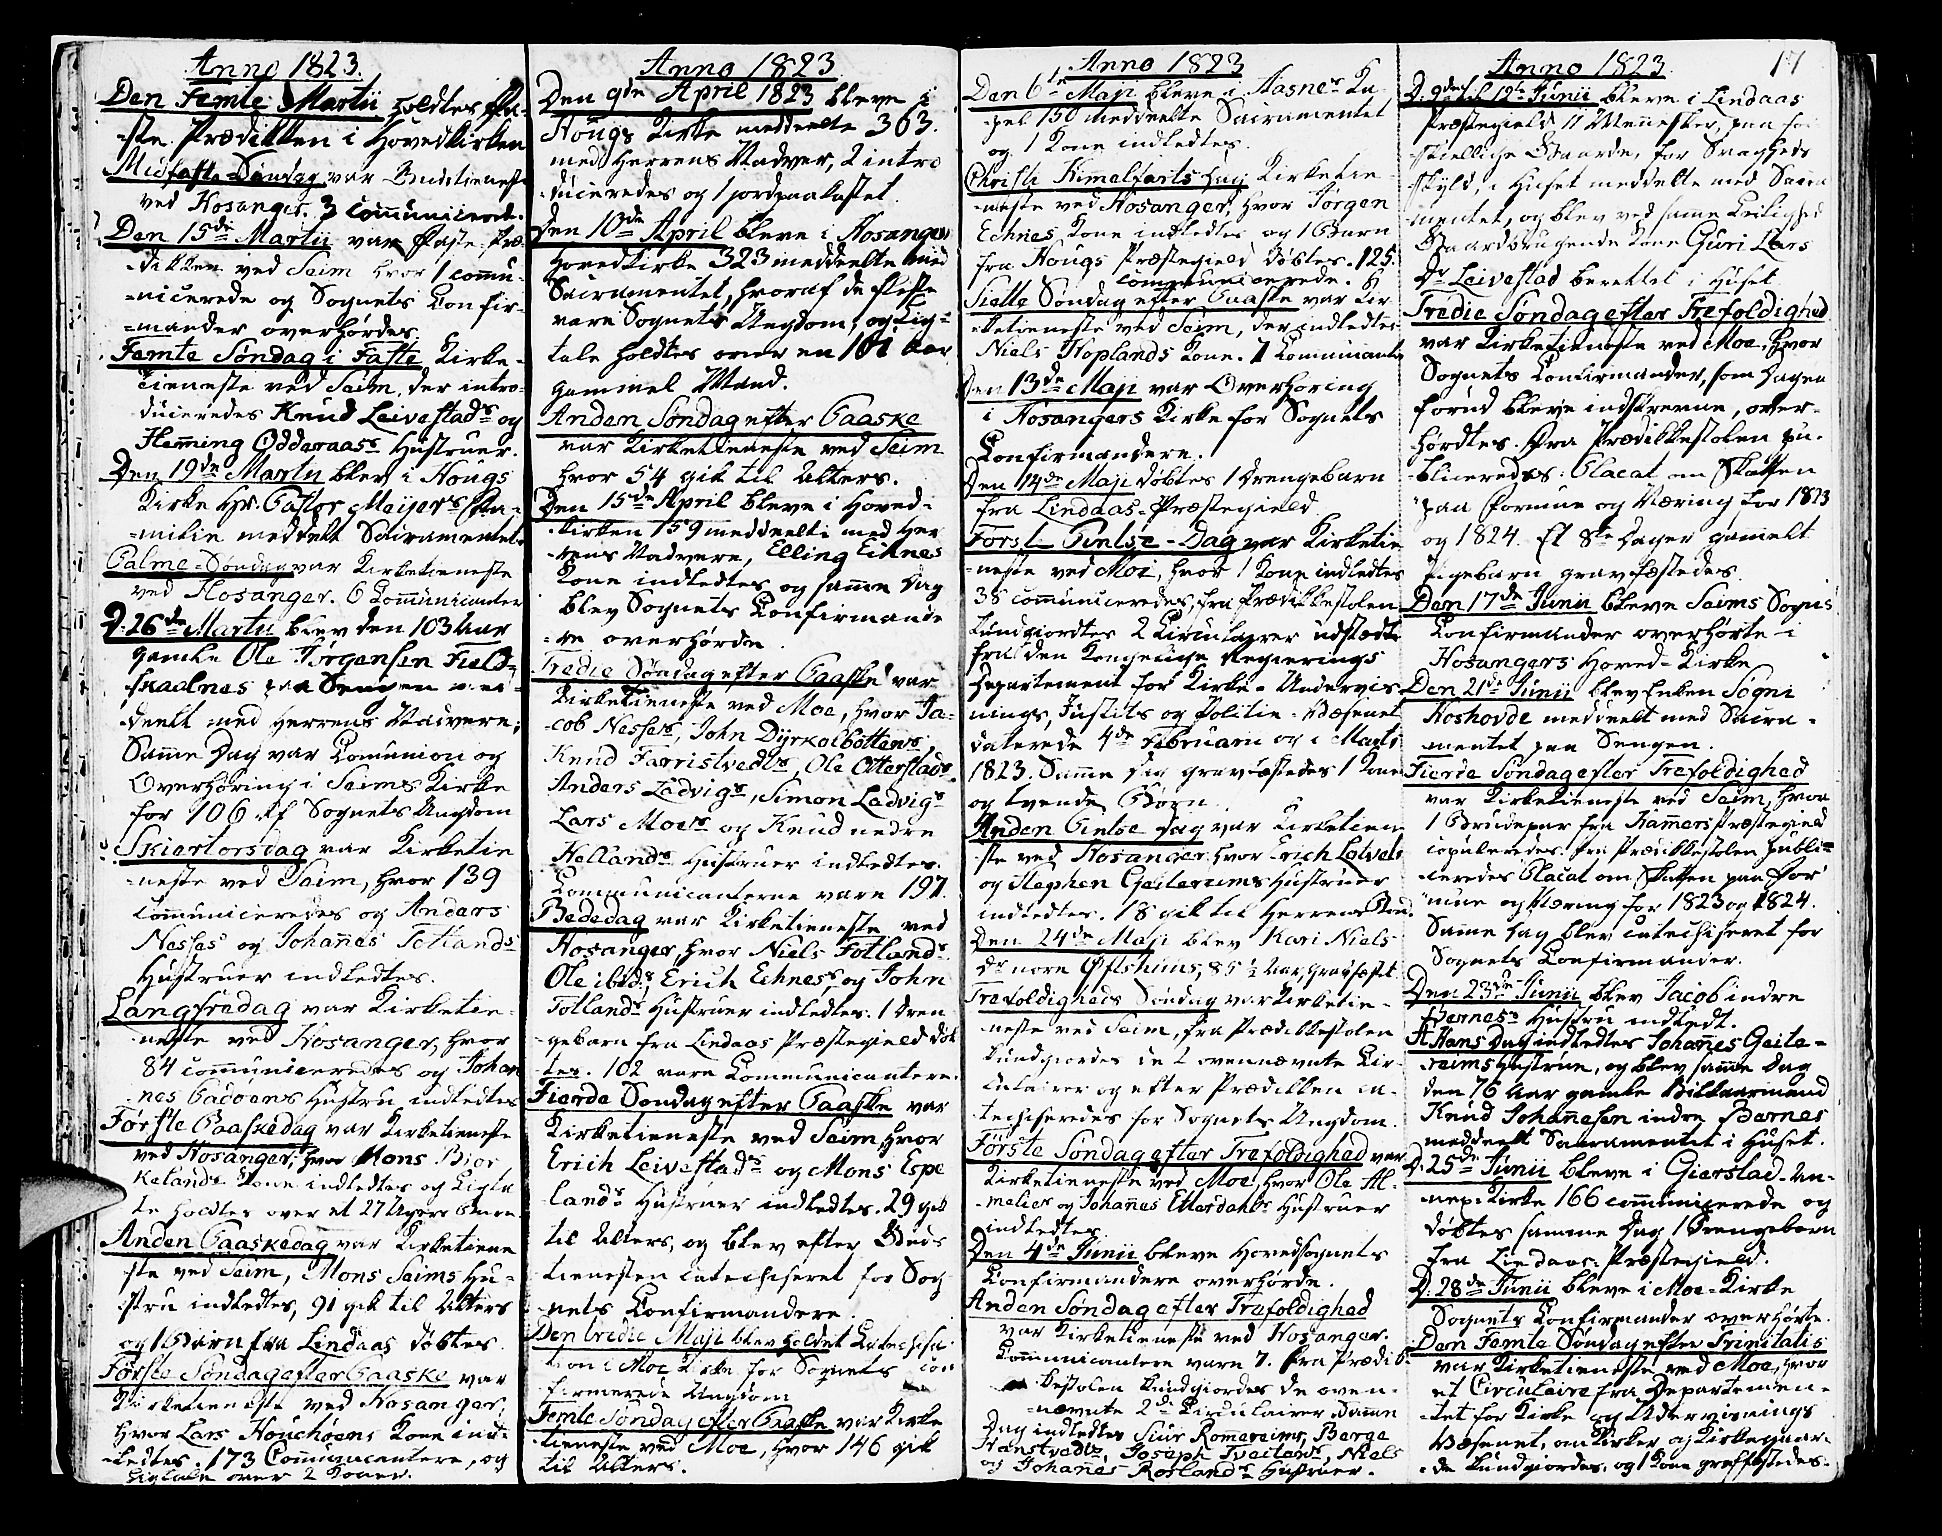 Anno 1823.
Den Femte Martii holdtes Fa-
-ste Prædikken i Hovedkirken
Midfaste-Søndag var Gudstieneste
ved Hosanger. 3 communicerede.
Den 15de Martii var Faste-Præ-
-dikken ved Seim hvor 1 commu-
-nicerede og Sognets Confir-
-mander overhørdes
Femte Søndag i Faste Kirke-
Tieneste ved Seim, der intro-
duceredes Knud Leivestads og
Flemming Odderaass Hustruer.
Den 19de Martii blev i Hougs
Kirke Hr. Pastor Meijers Fa-
-milie meddelt Sacramentet.
Palme-Søndag var Kirketieneste
ved Hosanger. 6 Communicanter
D: 26de Martii blev den 103 Aar
gamle Ole Jørgensen Field-
skaalnes paa Sengen
deelt med Herrens Nadvere;
Samme Dag var Comunion og
Overhøring i Seims Kirke
for 106 af Sognets Ungdom
Skiærtorsdag var Kirketie
-neste ved Seim, hvor 139
communiceredes og Anders
Nesses og Johannes Totlands
Hustruer indledtes.
Langfredag var Kirketie-
neste ved Hosanger, hvor
84 communiceredes og Johan
nes Hustru indledtes
Første Paaskedag var Kirketieneste
ved Hosanger, hvor Mons Biør
kelands Kone indledtes og Ligta
le holdtes over et 27 Ugers Barn
Anden Paaskedag var Kirketiene
ste ved Seim, Mons Seims Hu-
stru indledtes, 91 gik til Alters
og 1 Barn fra Lindaas døbtes
Første Søndag efter Paaske var
Kirketieneste ved Hosanger,
hvor Lars Kone ind-
-ledtes. 173 Communicantere, og
Ligtale over 2 Koner.
Anno 1823
Den 9de April 1823 bleve i
Hougs Kirke meddeelte 363.
med Herrens Nadver, 2 intro
duceredes og 1 jordpaakastet.
Den 10de April bleve i Hosanger
Hovedkirke 323 meddeelte med
Sacramentet, hvoraf de fleste
vare Sognets Ungdom, og Lig-
tale holdtes over en 101 Aar
gammel Mand.
Anden Søndag efter Paaske
var Kirketieneste ved Seim
hvor 54 gik til Alters.
Den 15de April bleve i Hoved-
kirken 159 meddeelte med Her
rens Nadvere, Elling Eiknes
Kone indledtes og samme Dag
blev Sognets Confirmande
-re overhørde
Tredie Søndag efter Paaske var
Kirketieneste ved Moe, hvor Ja-
cob Nesses, John Dyrkolbottens,
Knud Farristvedts, Ole Otterstads,
Anders Ladvigs, Simon Ladvigs
Lars Moes og Knud nedre
Hellands Hustruer indledtes.
Communicanterne vare 197.
Bededag var Kirketieneste ved
Hosanger, hvor Niels Fotlands
Ole ibids, Erich Echness og John
Totlands Hustruer indledtes. 1 Dren
gebarn fra Lindaas Præstegield døb
tes. 102 vare Communicantere.
Fierde Søndag efter Paaske var
Kirketieneste ved Seim, hvor
Erich Leivestads og Mons Espe
lands Hustruer indledtes. 29 gik
til Alters, og blev efter Guds
tienesten catechiseret for Sog
nets Confirmandere.
Den tredie Maji blev holdet Catechisa-
tion i Moe Kirke for Sognets con
firmerede Ungdom
Femte Søndag efter Paaske var Kirke
tieneste ved Moe, hvor 146 gik
til Alters.
Anno 1823
Den 6te Maji bleve i Aasnes Ca-
pel 150 meddeelte Sacramentet
og 1 Kone indledtes.
Christi Himelfarts Dag Kirketie-
neste ved Hosanger, hvor Jørgen
Echnes Kone indledtes og 1 Barn
fra Hougs Præstegield døbtes. 125.
communicerede.
Siette Søndag efter Paaske var Kir
ketieneste ved Seim, der indledtes
Niels Hoplands Kone. 7 Communicanter
Den 13de Maji var Overhøring
i Hosangers Kirke for Sognets
Confirmandere.
Den 14de Maji døbtes 1 Drengebarn
fra Lindaas-Præstegield.
Først Pintse-Dag var Kirketie
neste ved Moe, hvor 1 Kone indledtes
38 communiceredes, fra Prædikkestolen
kundgiordtes 2 Circulairer udstædte
fra den Kongelige Regierings
Departement for Kirke-Undervis
nings, Justits og Politie-Væsenet
daterede 4de Februarii og i Marts
1823. Samme Dag gravfæstedes 1 Kone
og tvende Børn.
Anden Pintse Dag var Kirketiene
ste ved Hosanger hvor Erich
og Stephen Geiterums Hustruer
indledtes. 18 gik til Herrens Bord.
Den 24de Maji blev Kari Niels
dr norre Øftshuus, 85 1/2 Aar, gravfæstet
Trefoldigheds Søndag var Kirketie-
neste ved Seim, fra Prædikkestolen
kundgiordes de 2 ovennævnte Cir-
culairer og efter Prædikken ca-
techiseredes for Sognets Ungdom.
Første Søndag efter Trefoldighed var
Kirketieneste ved Moe, hvor Ole Al-
meliets og Johannes Etterdahls Hustruer
indledtes
Den 4de Junii bleve Hovedsognets
Confirmandere overhørde.
Anden Søndag efter Trefoldighed
var Kirketieneste ved Hosanger.
Communicantere vare 7. Fra Prædik-
kestolen kundgiordes de oven-
-nævnte 2de Circulairer, samme
Dag indledtes Siur Romereims, Børge
Hanstvedts, Joseph Tveitens, Niels
og Johannes Rørlands Hustruer.
Anno 1823
17
D: 9de til 12te Junii bleve i Lindaas
Præstegield 11 Mennesker, paa for
skiellige Gaarde, for Svagheds
skyld, i Huset meddelte med Sacra
mentet, og blev ved samme Leilighed
Gaardbrugende Kone Guri Lars
Dr Leivestad berettet i Huset
Tredie Søndag efter Trefoldighed
var Kirketieneste ved Moe, hvor
Sognets Confirmander, som Dagen
forud bleve indskrevne, over-
hørdtes. Fra Prædikkestolen pu-
bliceredes: Placat om Skatten
paa Formue og Næring for 1823
og 1824. Et 8te Dages gamelt
Pigebarn gravfæstedes
Den 17de Junii bleve Seims Sogns
Confirmander overhørte i
Hosangers Hoved-Kirke
Den 21de Junii blev Enken Sogni
Hoshovde meddeelt med Sacra-
mentet paa Sengen.
Fierde Søndag efter Trefoldighed
var Kirketieneste ved Seim, hvor
1 Brudepar fra Hammers Præstegield
copuleredes. Fra Prædikkestolen publi-
ceredes Placat om Skatten paa For
mue og Næring for 1823 og 1824.
Samme Dag blev catechiseret for
Sognets Confirmander.
Den 23de Junii blev Jacob indre
Bernes Hustru indledt.
St Hans Dag indledtes Johannes Geite-
reims Hustrue, og blev samme Dag
den 76 Aar gamle Vilkaarmand
Knud Johannesen indre Bernes
meddeelt Sacramentet i Huset.
D: 25de Junii bleve i Gierstad An-
nex-Kirke 166 communicerede og
døbtes samme Dag 1 Drengebarn
fra Lindaas Præstegield.
D: 28de Junii bleve i Moe-Kirke
Sognets Confirmander overhørte.
Den Femte Søndag efter Trinitatis
var Kirketieneste ved Moe, hvor
et Circulaire fra Departemen-
tet for Kirke og Undervisnings
Væsenet, om Kirker og Kirkegaar-
de kundgiordes, og 1 Kone gravfæstedes.